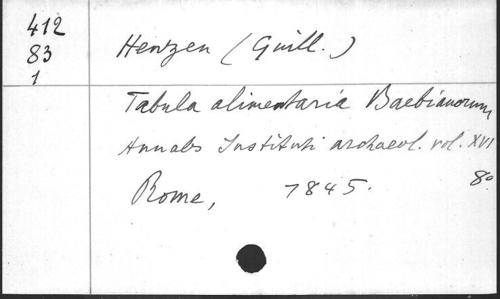 412
83
1
Henzen (Guill.)
Tabula alimentaria Baebianorum,
Annales Instituti archaeol. vol. XVI
Rome, 1845. 8°